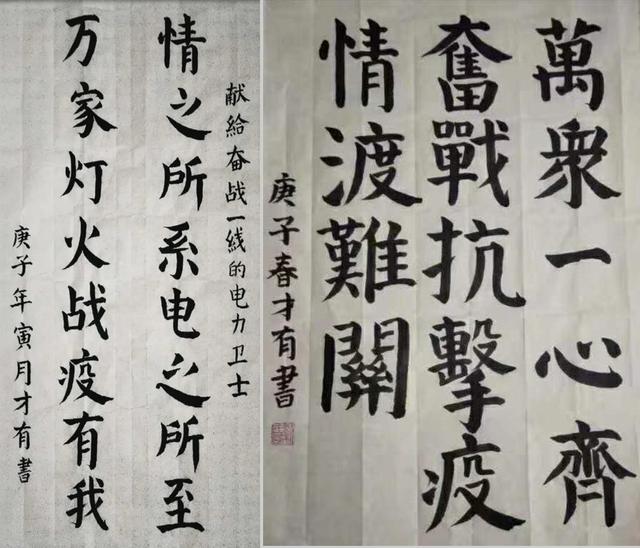 献给奋战一线的电力卫士
情之所系电之所至
万家灯火战疫有我
庚子年寅月才有書
萬衆一心齊
奮戰抗擊疫
情渡難關
庚子春才有書